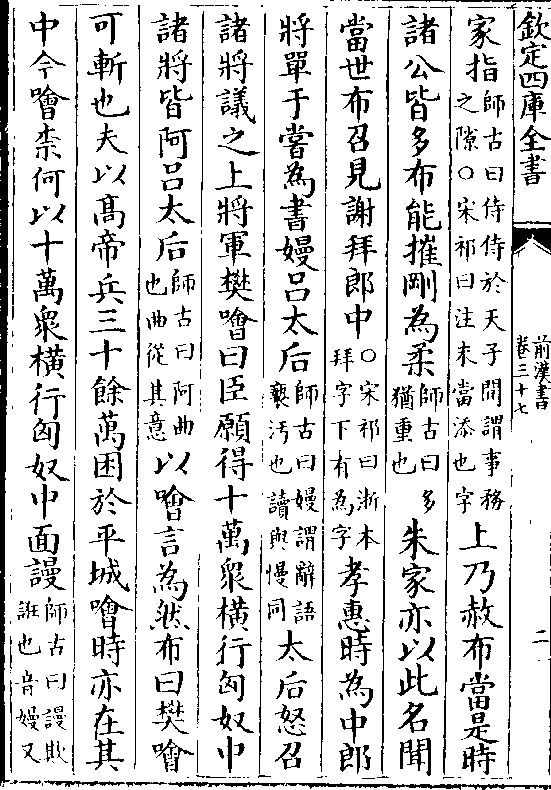 欽定四庫全書
前漢書
卷三十七
二
家指師古曰侍侍於天子間謂事務之隙○宋祁曰注末當添也字上乃赦布當是時
諸公皆多布能摧剛為柔師古曰多猶重也朱家亦以此名聞
當世布召見謝拜郎中○宋祁曰浙本拜字下有為字孝惠時為中郎
將單于嘗為書嫚吕太后師古曰嫚謂辭語褻汚也讀與慢同太后怒召
諸將議之上將軍樊噲曰臣願得十萬衆橫行匈奴中
諸將皆阿吕太后師古曰阿曲也曲從其意以噲言為然布曰樊噲
可斬也夫以髙帝兵三十餘萬困於平城噲時亦在其
中今噲柰何以十萬衆橫行匈奴中面謾師古曰謾欺誑也音嫚又